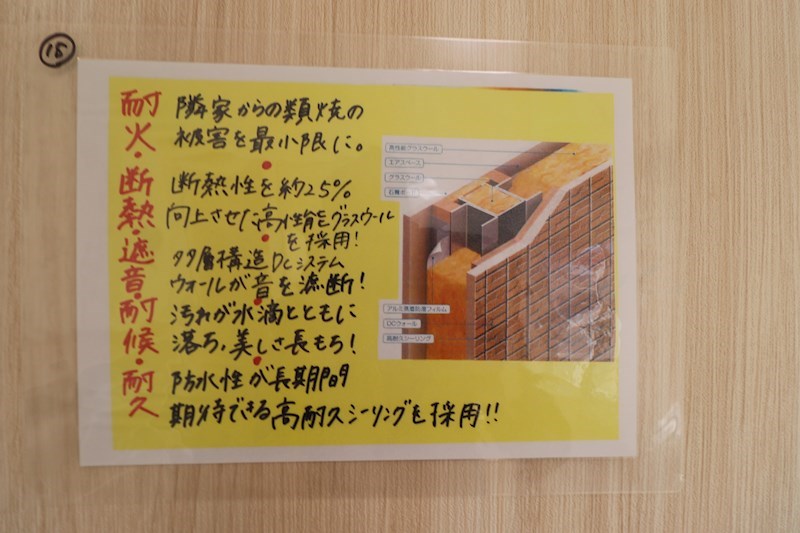 18
耐火・断熱・遮音・耐候・耐久
隣家からの類焼の
被害を最小限に。
断熱性を約25%
向上させた高性能グラスウール
を採用!
多層構造DCシステム
ウォールが音を遮断!
汚れが水滴とともに
落ち,美しさ長もち!
防水性が長期間
期待できる高耐久シーリングを採用!!
高性能グラスウール
エアスペース
グラスウール
石膏ボ
アルミ蒸着防湿フィルム
DCウォール
高耐久シーリング